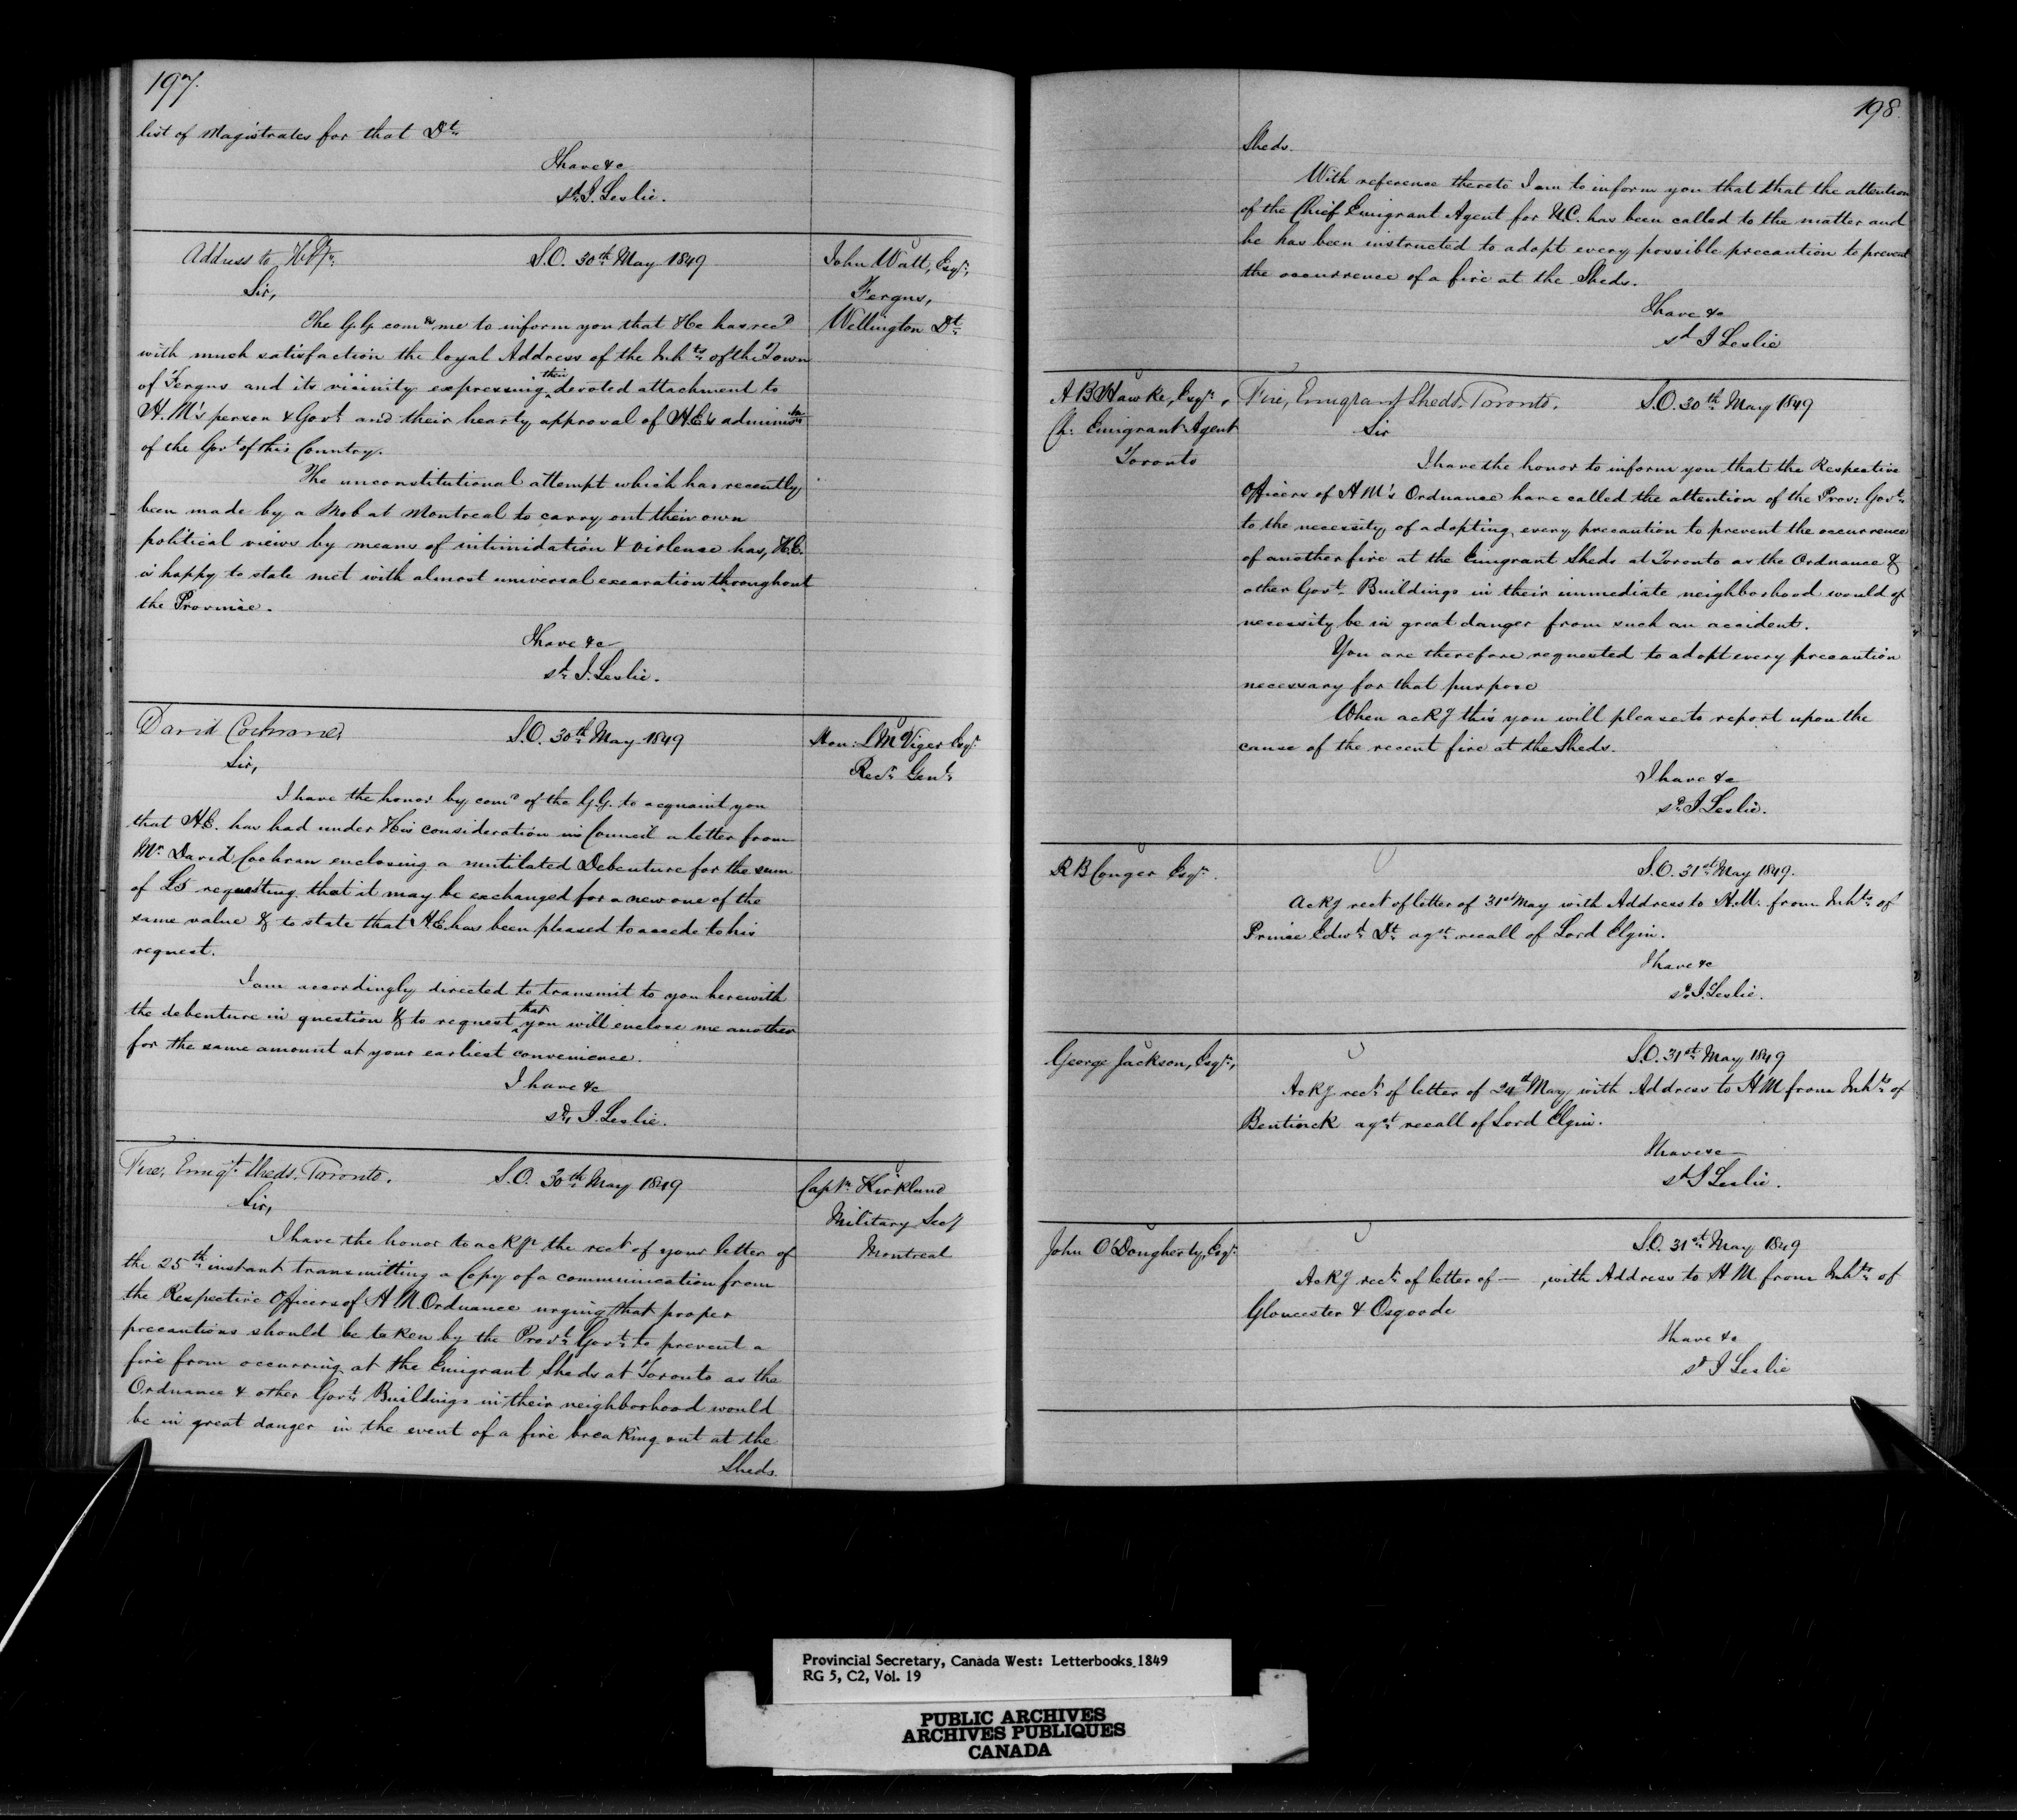 197.
list of Magistrates for that Dt.
I have &c
sd. J. Leslie.
Address to
S.O. 30th May 1849
John Watt, Esqr,
Fergus,
Wellington Dt.
Sir,
The G.G. comds me to inform you that He has recd
with much satisfaction the loyal Address of the Inhts. of the Town
of Fergus and its vicinity expressing their devoted attachment to
H.M's person & Govt. and their hearty approval of H.E's adminisn
of the Govt of this Country.
The unconstitutional attempt which has recently
been made by a Mob at Montreal to carry out their own
political views by means of intimidation & violence has, H.E.
is happy to state met with almost universal execration throughout
the Province.
I have &c
sd. J. Leslie.
David Cochrane,
S.O. 30th May 1849
Hon: L M Viger Esqr
Recr. Genl.
Sir,
I have the honor by comd of the G.G. to acquaint you
that H.E. has had under His consideration in Council a letter from
Mr David Cochran enclosing a mutilated Debenture for the sum
of £5 requesting that it may be exchanged for a new one of the
same value & to state that H.E. has been pleased to accede to his
request.
I am accordingly directed to transmit to you herewith
the debenture in question & to request that you will enclose me another
for the same amount at your earliest convenience.
I have &c
sd. J. Leslie.
Fire, Emigt. Sheds, Toronto.
S.O. 30th May 1849
Captn. Kirkland
Military Secy
Montreal
Sir,
I have the honor to ackge the rect of your letter of
the 25th instant transmitting a Copy of a communication from
the Respective Officers of H.M. Ordnance urging that proper
precautions should be taken by the Provl. Govt. to prevent a
fire from occurring at the Emigrant Sheds at Toronto as the
Ordnance & other Govt. Buildings in their neighborhood would
be in great danger in the event of a fire breaking out at the
Sheds.
198.
Sheds.
With reference thereto I am to inform you that that the attention
of the Chief Emigrant Agent for U.C. has been called to the matter and
he has been instructed to adopt every possible precaution to prevent
the occurrence of a fire at the Sheds.
I have &c
sd J Leslie
A B Hawke, Esqr,
Ch: Emigrant Agent
Toronto
Fire, Emigrant Sheds, Toronto.
S.O. 30th May 1849
Sir
I have the honor to inform you that the Respective
Officers of H M's Ordnance have called the attention of the Prov: Govt.
to the necessity of adopting every precaution to prevent the occurrence
of another fire at the Emigrant Sheds at Toronto as the Ordnance &
other Govt. Buildings in their immediate neighborhood would of
necessity be in great danger from such an accident.
You are therefore requested to adopt every precaution
necessary for that purpose
When ackg this you will please to report upon the
cause of the recent fire at the Sheds.
I have &c
sd. J. Leslie.
R B Conger Esqr.
S.O. 31st May 1849.
Ackg rect of letter of 31st May with Address to H.M. from Inhts. of
Prince Edwd. Dt. agst. recall of Lord Elgin.
I have &c
sd. J. Leslie.
George Jackson, Esqr,
S.O. 31st. May 1849
Ackg rect. of letter of 24th May with Address to H M from Inhts. of
Bentinck agst. recall of Lord Elgin.
I have &c
sd J Leslie.
John O'Dougherty, Esqr.
S.O. 31st. May 1849
Ackg rect. of letter of — , with Address to H M from Inhts. of
Gloucester & Osgoode
I have &c
sd J Leslie
Provincial Secretary, Canada West: Letterbooks 1849
RG 5, C2, Vol. 19
PUBLIC ARCHIVES
ARCHIVES PUBLIQUES
CANADA